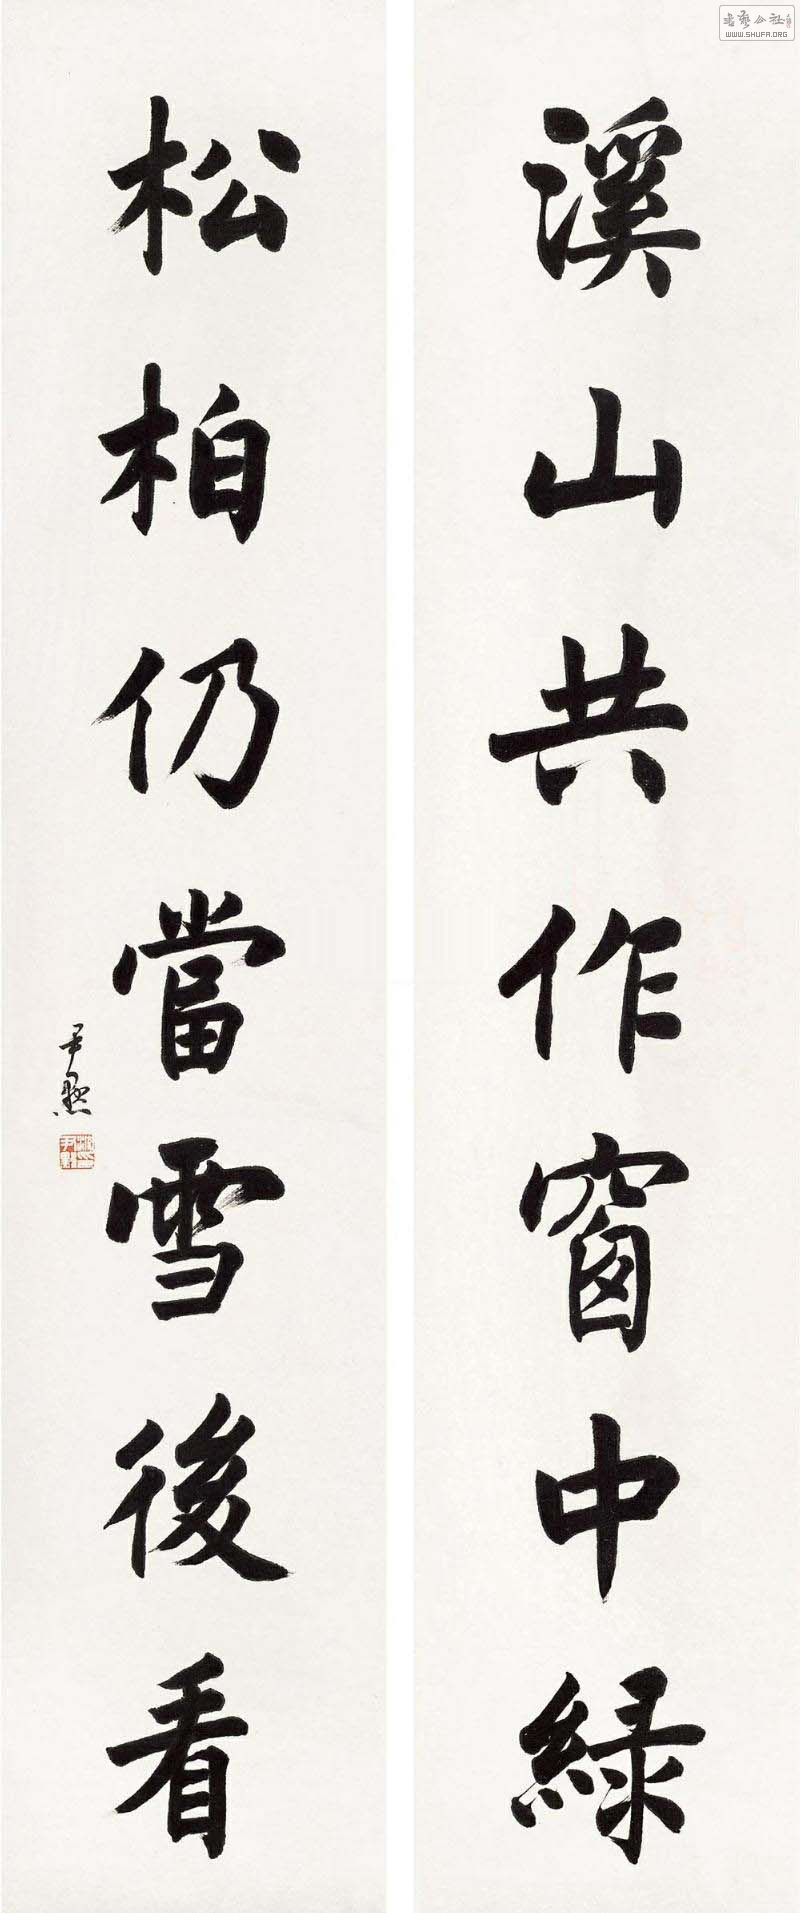 溪山共作窗中緑
松柏仍當雪後看
尹默
書藝公社
WWW.SHUFA.ORG